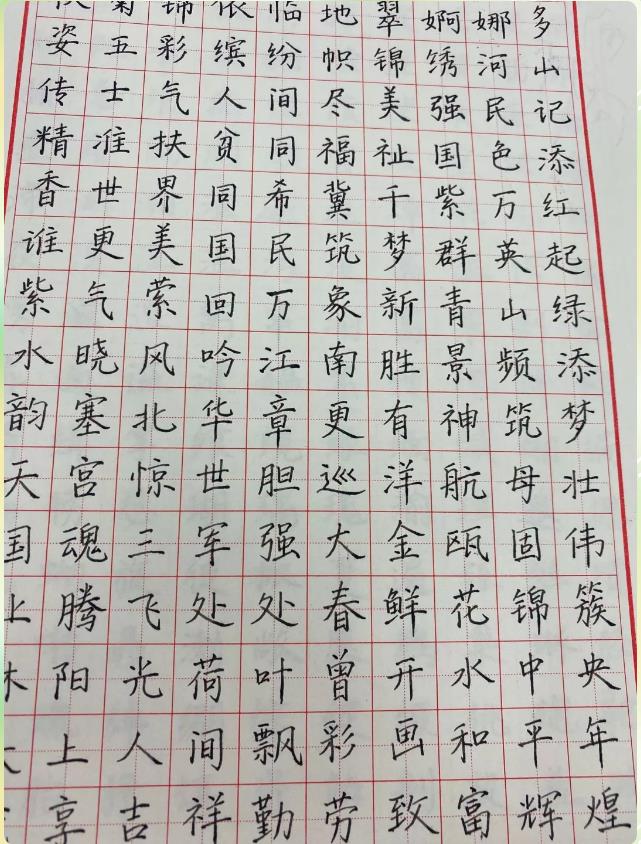 锦依临地翠婀娜多
姿五彩缤纷帜锦绣河山
传士气人间尽美强民记
精准扶贫同福祉国色添
香世界同希冀千紫万红
谁更美国民筑梦群英起
紫气萦回万象新青山绿
水晓风吟江南胜景频添
韵塞北华章更有神筑梦
天宫惊世胆巡洋航母壮
国魂三军强大金瓯固伟
上腾飞处处春鲜花锦簇
沐阳光荷叶曾开水中央
上人间飘彩画和平年
享吉祥勤劳致富辉煌